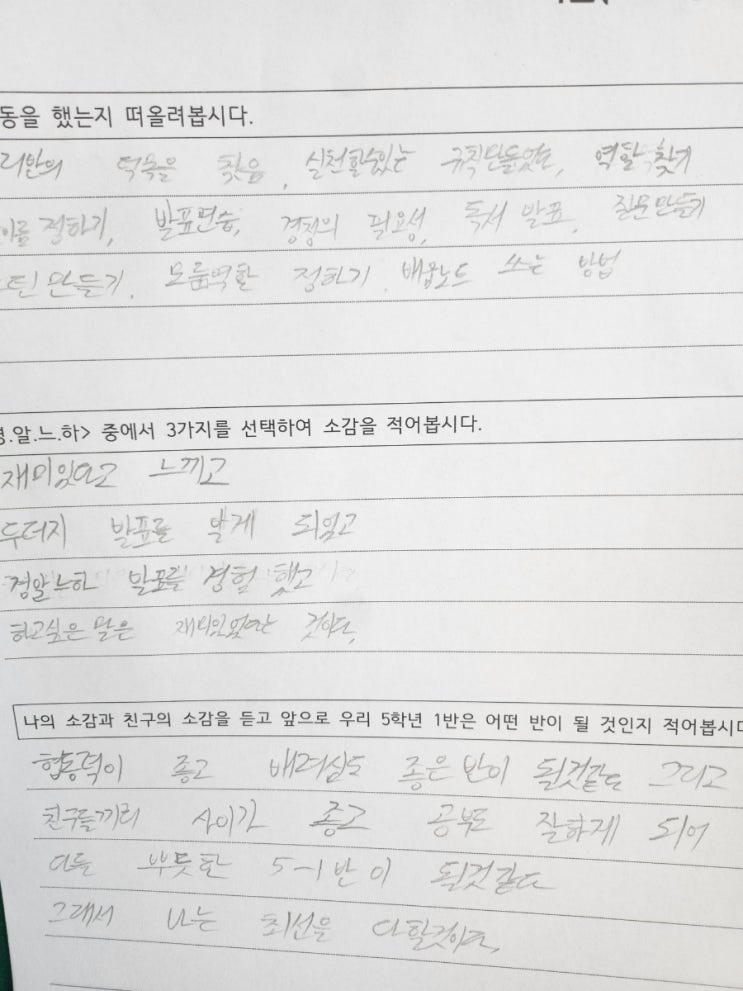 동을 했는지 떠올려봅시다.
리반의 덕목을 찾음, 실천할수있는 규칙만들었고, 역할 찾기
이름 정하기, 발표연습, 경청의 필요성, 독서 발표, 질문만들기
틴 만들기, 모둠역할 정하기, 배움노트 쓰는 방법
경.알.느.하> 중에서 3가지를 선택하여 소감을 적어봅시다.
재미있다고 느끼고
두더지 발표를 알게 되었고
경알느하 발표를 경험 했고
하고싶은 말은 재미있었다는 것이다.
나의 소감과 친구의 소감을 듣고 앞으로 우리 5학년 1반은 어떤 반이 될 것인지 적어봅시다
협동력이 좋고 배려심도 좋은 반이 될것같다 그리고
친구들끼리 사이가 좋고 공부도 잘하게 되어
다들 뿌듯한 5-1반이 될것같다
그래서 나는 최선을 다할것이다.